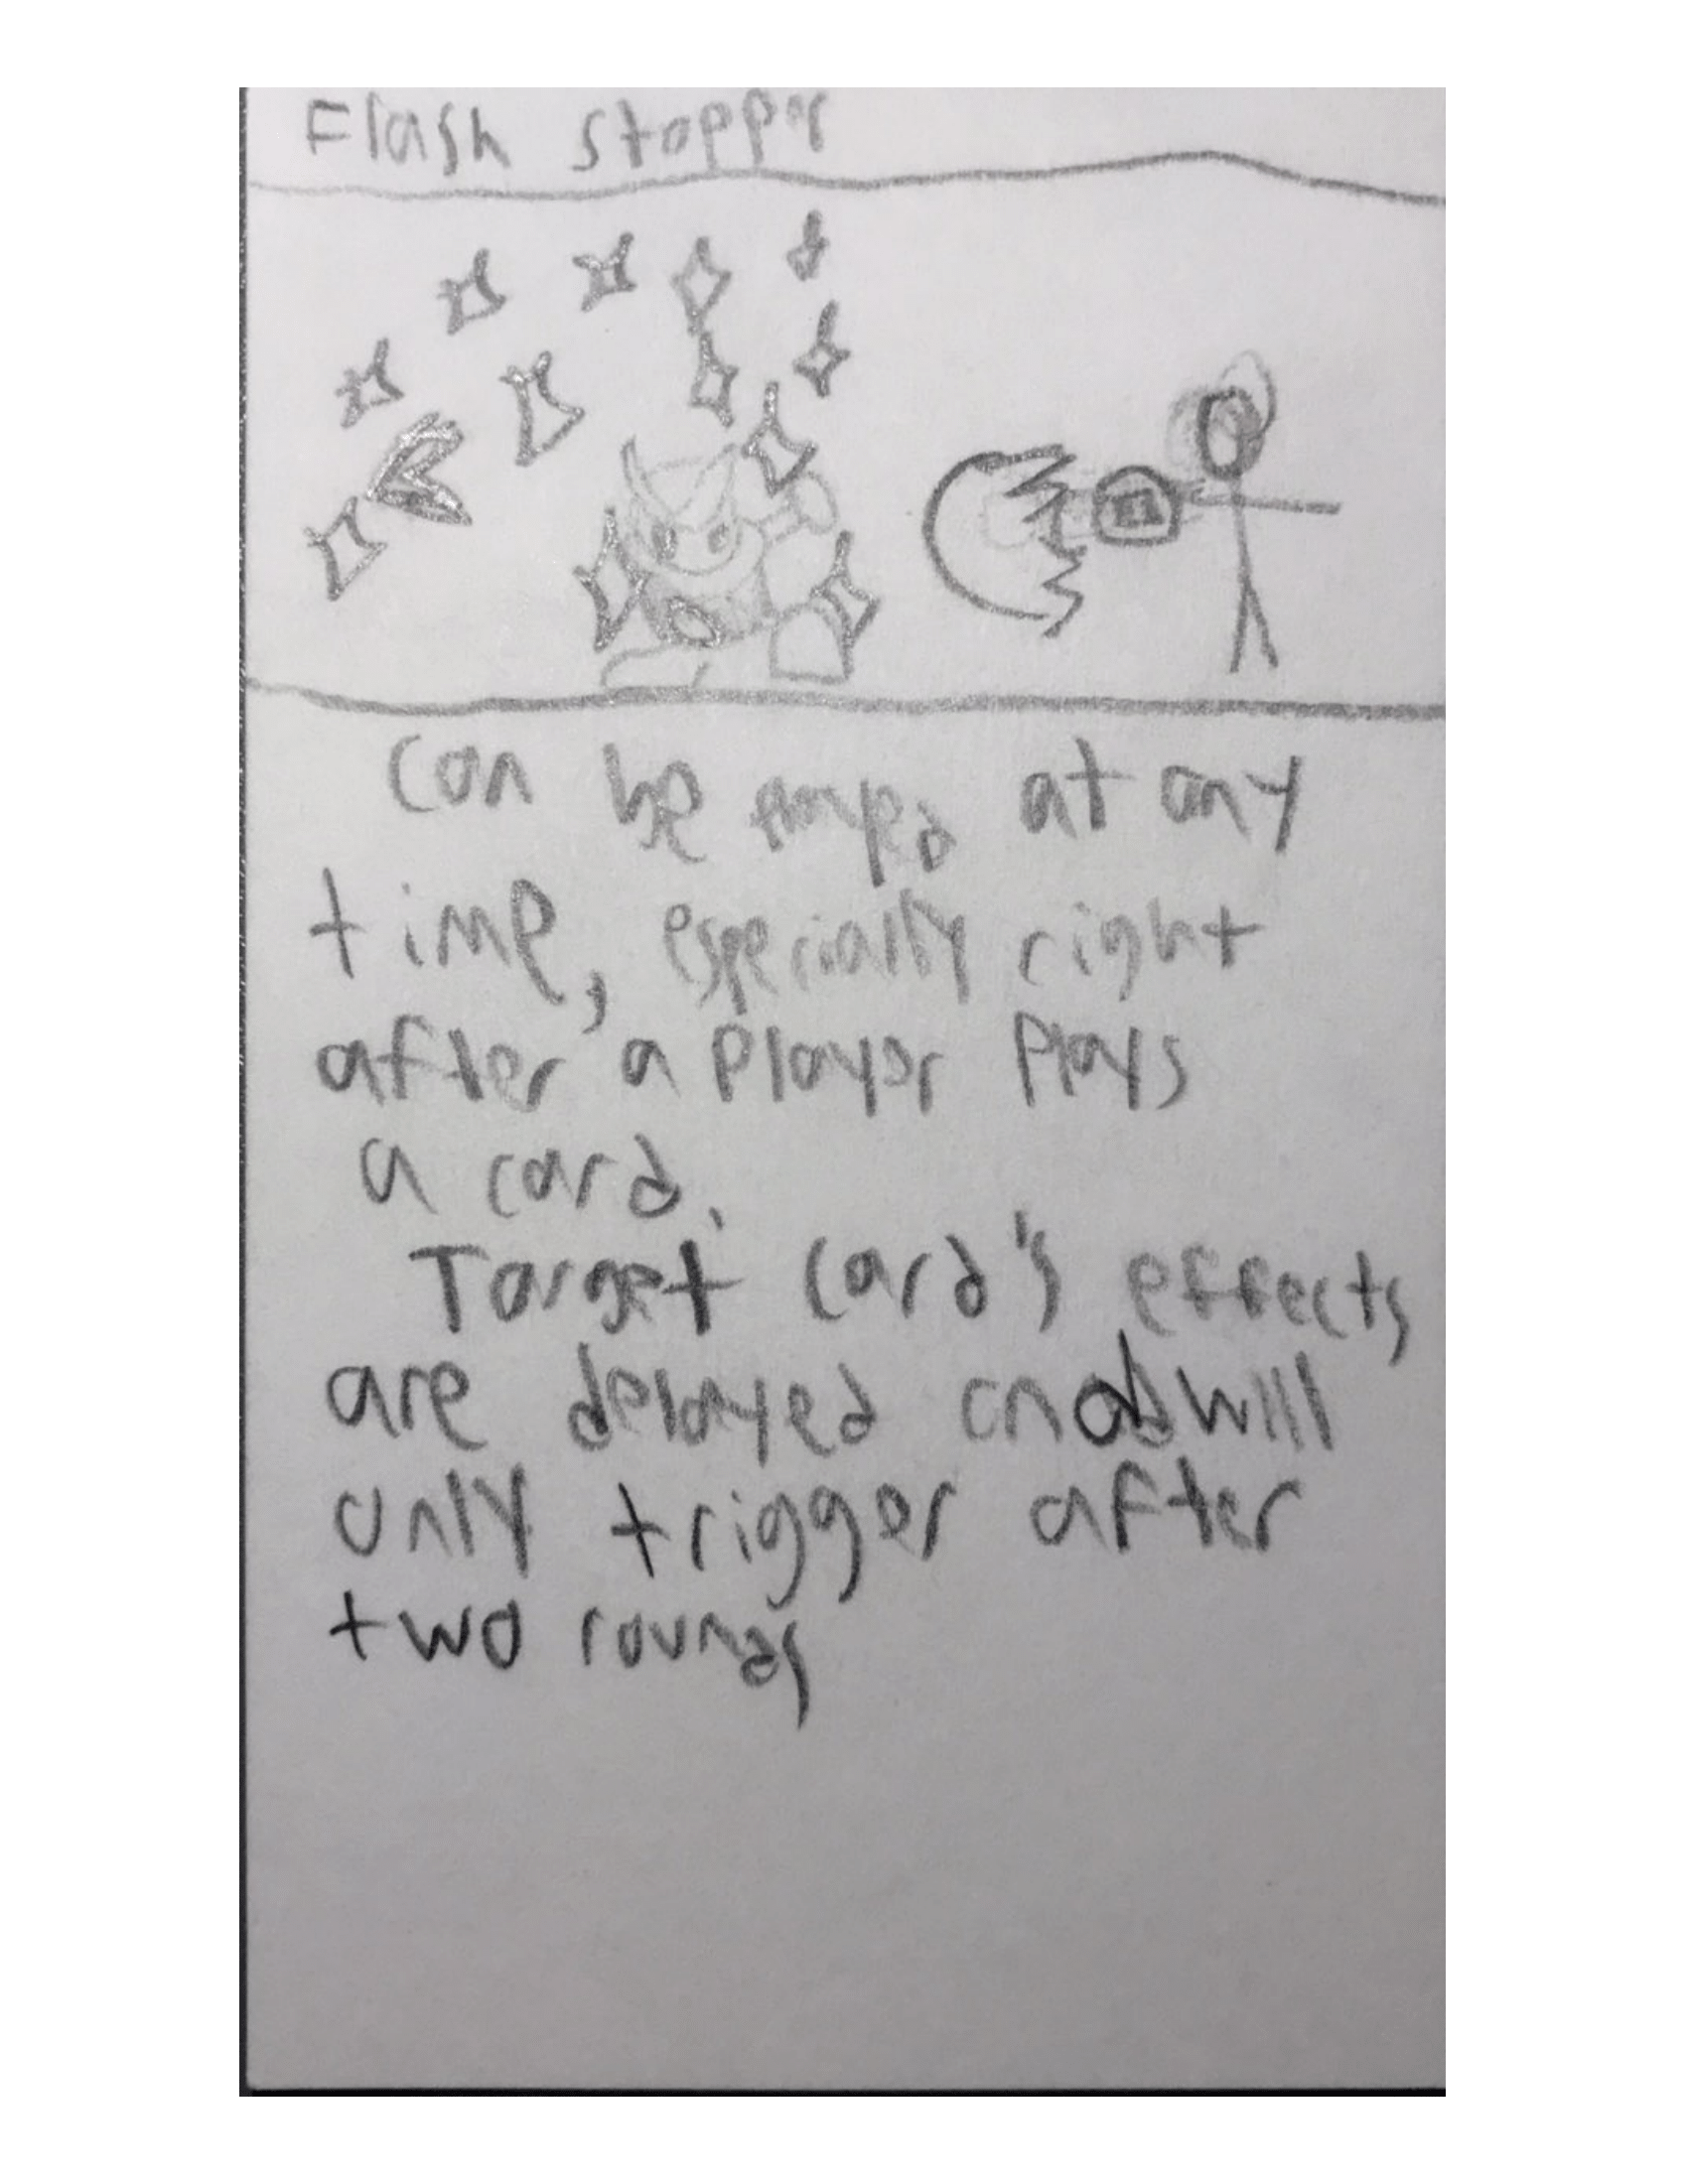 Flash stopper
Can be at any
time, especially right
after a Player Plays
a card.
Target Card's effects
are delayed and will
only trigger after
two rounds